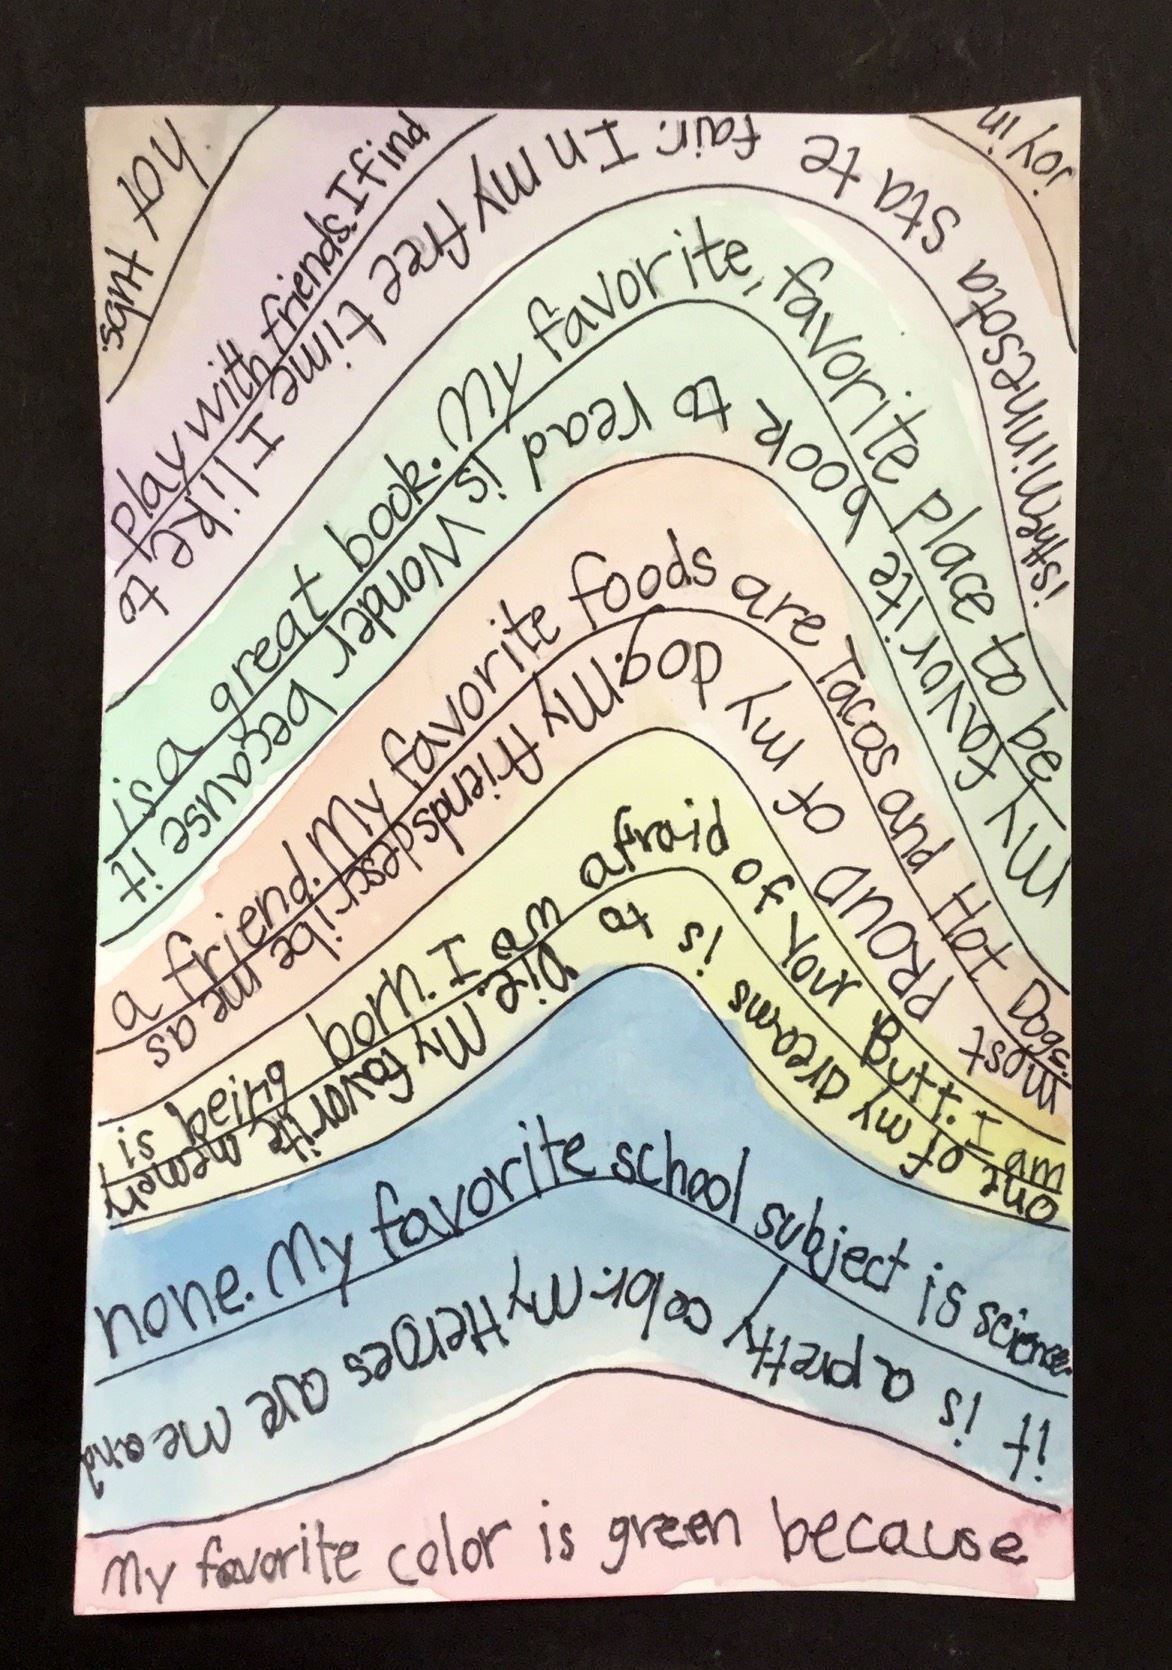 My favorite color is green because
it is a pretty color. My Heroes are me and
none. My favorite school subject is science.
one of my dreams is to Die. My favorite memery
is being born. I am afraid of Your Butt. I am
most PROUD of my dog. My friends describe me as
a friend. My favorite foods are Tacos and Hot Dogs.
My favorite book to read is Wonder because it
is a great book. My favorite, favorite place to be
is the minnesota state fair. In my free time I like to
play with friends. I find
joy in
hot tubs.